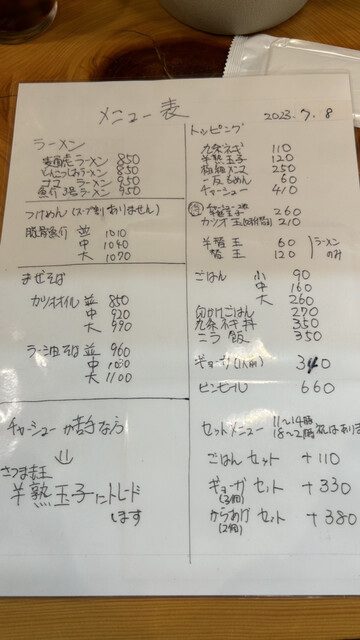 メニュー表
2023.7.8
ラーメン
ラーメン 850
とんこつラーメン 850
ラーメン 950
ラーメン 950
つけめん (スープ割りありません)
豚骨魚介 並 1010
中 1040
大 1070
まぜそば
カツオオイル 並 850
中 920
大 990
ラー油そば 並 960
中 1030
大 1100
チャーシューが苦手な方
さつま赤玉
半熟玉子にトレード
します
トッピング
九条ネギ 110
半熟玉子 120
極細メンマ 250
60
チャーシュー 410
260
カツオ玉 210
半替玉 60
替玉 120
ラーメンのみ
ごはん 小 90
中 160
大 260
ごはん 270
九条ネギ丼 350
ニラ飯 350
ギョーザ(1人前) 340
ビンビール 660
セットメニュー 11〜14時
18〜21時
ごはんセット +110
ギョーザセット +330
(3個)
からあげセット +380
(2個)